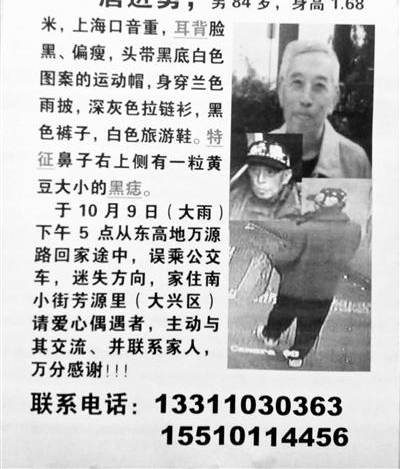 男84岁，身高1.68
米，上海口音重，耳背脸
黑、偏瘦，头带黑底白色
图案的运动帽，身穿兰色
雨披，深灰色拉链衫，黑
色裤子，白色旅游鞋。特
征鼻子右上侧有一粒黄
豆大小的黑痣。
于10月9日（大雨）
下午5点从东高地万源
路回家途中，误乘公交
车，迷失方向，家住南
小街芳源里（大兴区）
请爱心偶遇者，主动与
其交流、并联系家人，
万分感谢!!!
Camera 06
联系电话：13311030363
15510114456